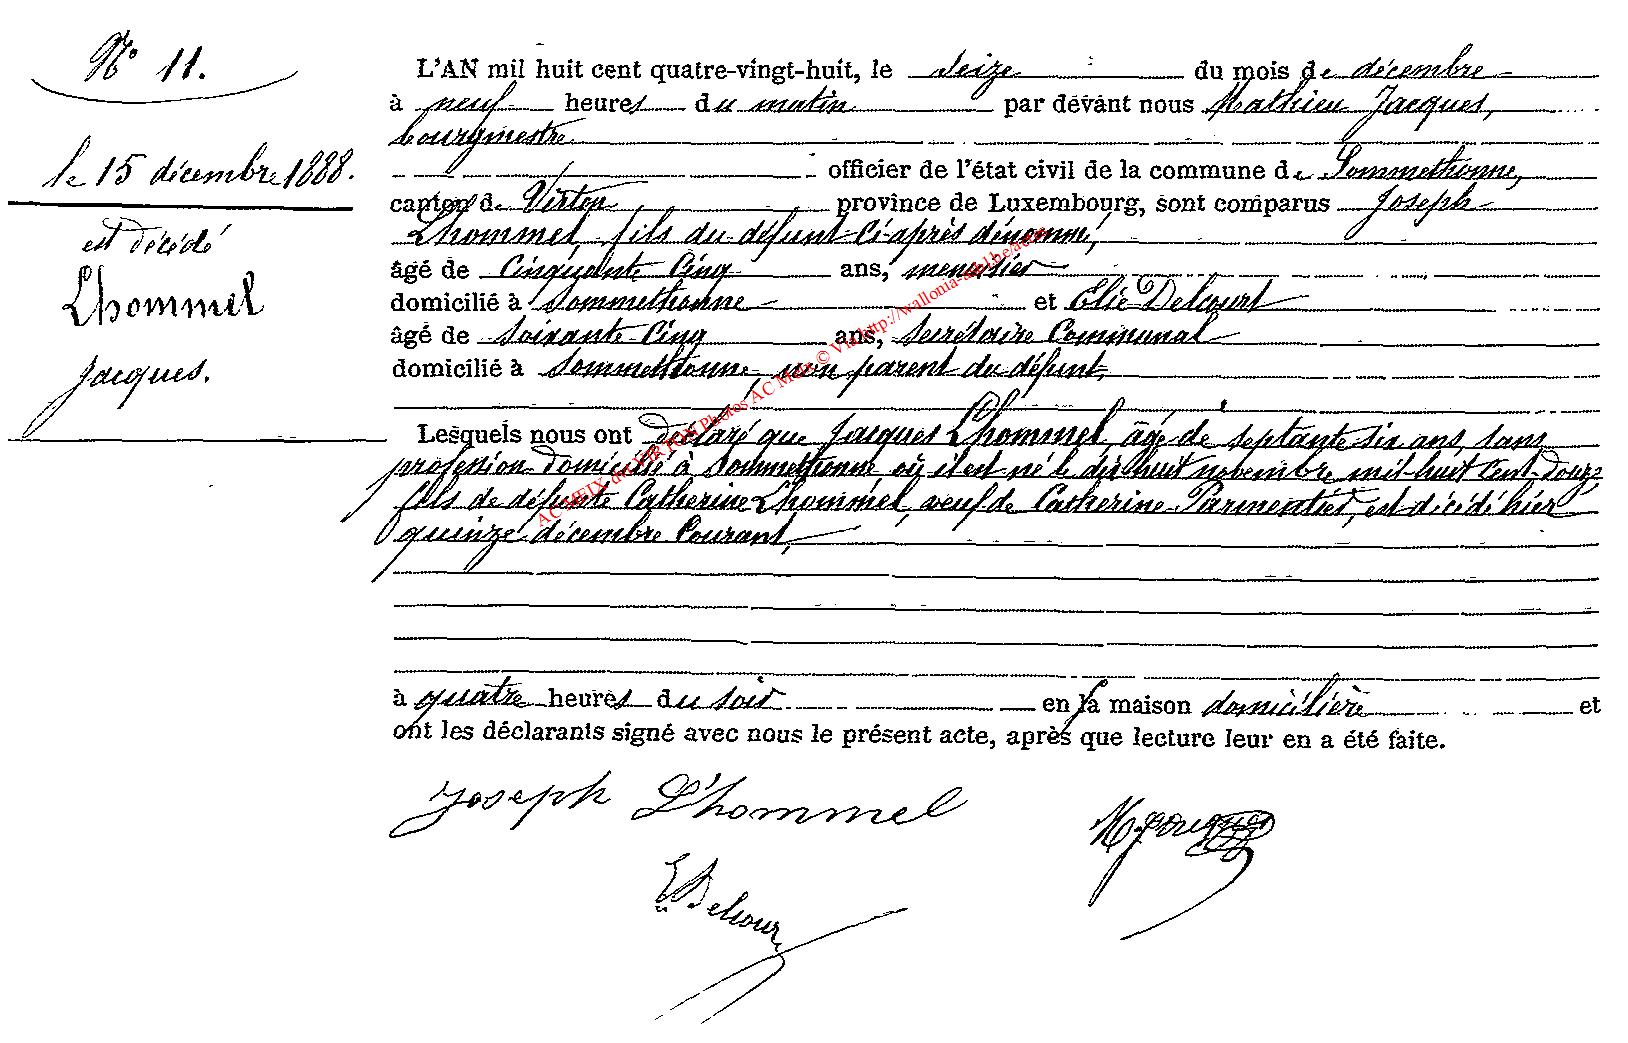 N° 11.
le 15 décembre 1888.
est décédé
Lhommel
Jacques.
L'AN mil huit cent quatre-vingt-huit, le seize du mois de décembre
à neuf heures du matin par devant nous Mathieu Jacques,
bourgmestre
officier de l'état civil de la commune de Sommethonne,
canton de Virton province de Luxembourg, sont comparus Joseph
Lhommel, fils du défunt ci-après dénommé,
âgé de cinquante cinq ans, menuisier
domicilié à Sommethonne et Elie Delcourt
âgé de soixante cinq ans, secrétaire communal
domicilié à Sommethonne, non parent du défunt,
Lesquels nous ont déclaré que Jacques Lhommel, âgé de septante six ans, sans
profession domicilié à Sommethonne où il est né le dix huit novembre mil-huit cent-douze
fils de défunte Catherine Lhommel, veuf de Catherine Parmentier, est décédé hier
quinze décembre courant,
à quatre heures du soir en sa maison domicilière et
ont les déclarants signé avec nous le présent acte, après que lecture leur en a été faite.
Joseph L'hommel
M Jacques
E Delcour
AC MEIX dvt VIRTON Photos AC Meix © Via http://wallonia-asbl.be/actes